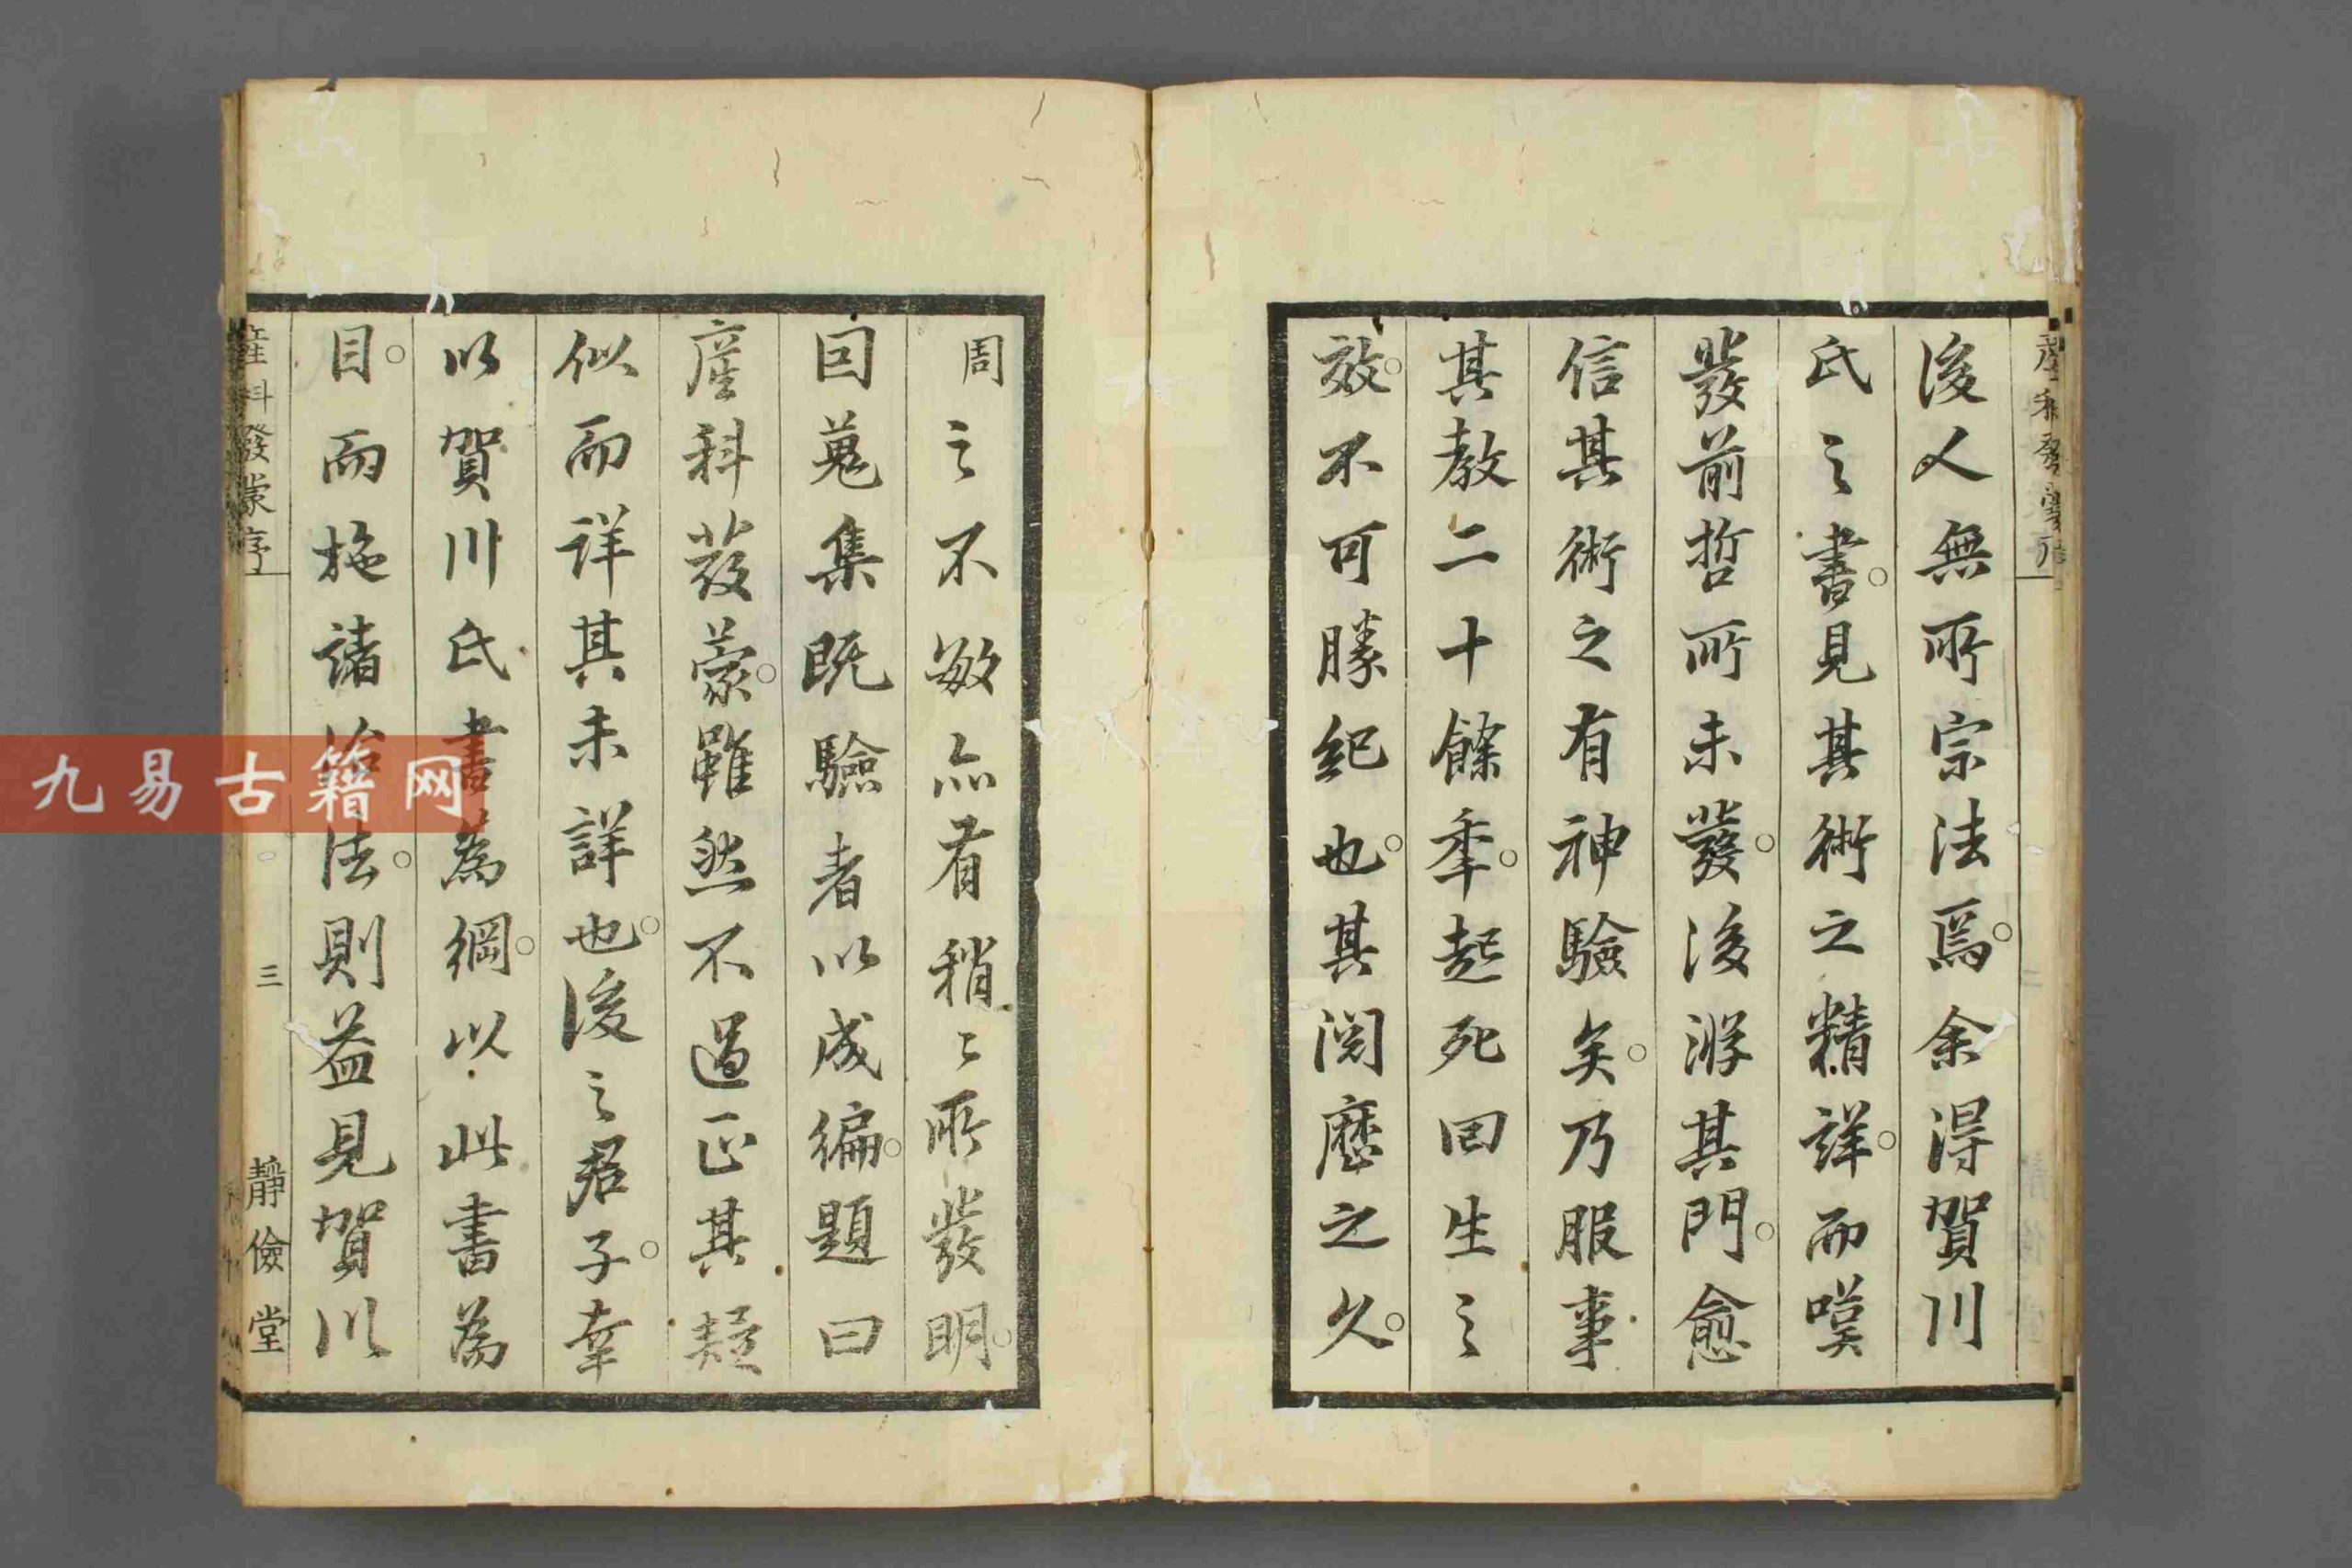 後人無所宗法焉余得賀川
氏之書見其術之精詳而嘆
發前哲所未發後游其門愈
信其術之有神驗矣乃服事
其教二十餘年起死回生之
效不可勝紀也其閱歷之久
周之不敏亦有稍〻所發明
因蒐集既驗者以成編題曰
產科發蒙雖然不過正其疑
似而詳其未詳也後之君子幸
以賀川氏書為綱以此書為
目而施諸治法則益見賀川
產科發蒙序
三
靜儉堂
九易古籍网